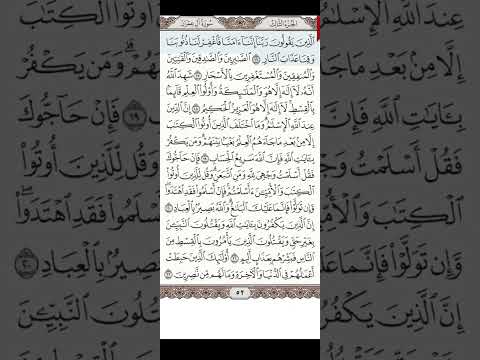 الجزء الثالث
سورة آل عمران
ٱلَّذِينَ يَقُولُونَ رَبَّنَآ إِنَّنَآ ءَامَنَّا فَٱغْفِرْ لَنَا ذُنُوبَنَا
وَقِنَا عَذَابَ ٱلنَّارِ ١٦ ٱلصَّٰبِرِينَ وَٱلصَّٰدِقِينَ وَٱلْقَٰنِتِينَ
وَٱلْمُنفِقِينَ وَٱلْمُسْتَغْفِرِينَ بِٱلْأَسْحَارِ ١٧ شَهِدَ ٱللَّهُ
أَنَّهُۥ لَآ إِلَٰهَ إِلَّا هُوَ وَٱلْمَلَٰٓئِكَةُ وَأُو۟لُوا۟ ٱلْعِلْمِ قَآئِمًۢا
بِٱلْقِسْطِ لَآ إِلَٰهَ إِلَّا هُوَ ٱلْعَزِيزُ ٱلْحَكِيمُ ١٨ إِنَّ ٱلدِّينَ
عِندَ ٱللَّهِ ٱلْإِسْلَٰمُ وَمَا ٱخْتَلَفَ ٱلَّذِينَ أُوتُوا۟ ٱلْكِتَٰبَ
إِلَّا مِنۢ بَعْدِ مَا جَآءَهُمُ ٱلْعِلْمُ بَغْيًۢا بَيْنَهُمْ وَمَن يَكْفُرْ
بِـَٔايَٰتِ ٱللَّهِ فَإِنَّ ٱللَّهَ سَرِيعُ ٱلْحِسَابِ ١٩ فَإِنْ حَآجُّوكَ
فَقُلْ أَسْلَمْتُ وَجْهِىَ لِلَّهِ وَمَنِ ٱتَّبَعَنِ وَقُل لِّلَّذِينَ أُوتُوا۟
ٱلْكِتَٰبَ وَٱلْأُمِّيِّـۧنَ ءَأَسْلَمْتُمْ فَإِنْ أَسْلَمُوا۟ فَقَدِ ٱهْتَدَوا۟
وَّإِن تَوَلَّوْا۟ فَإِنَّمَا عَلَيْكَ ٱلْبَلَٰغُ وَٱللَّهُ بَصِيرٌۢ بِٱلْعِبَادِ ٢٠
إِنَّ ٱلَّذِينَ يَكْفُرُونَ بِـَٔايَٰتِ ٱللَّهِ وَيَقْتُلُونَ ٱلنَّبِيِّـۧنَ
بِغَيْرِ حَقٍّ وَيَقْتُلُونَ ٱلَّذِينَ يَأْمُرُونَ بِٱلْقِسْطِ مِنَ
ٱلنَّاسِ فَبَشِّرْهُم بِعَذَابٍ أَلِيمٍ ٢١ أُو۟لَٰٓئِكَ ٱلَّذِينَ حَبِطَتْ
أَعْمَٰلُهُمْ فِى ٱلدُّنْيَا وَٱلْـَٔاخِرَةِ وَمَا لَهُم مِّن نَّٰصِرِينَ ٢٢
٥٢